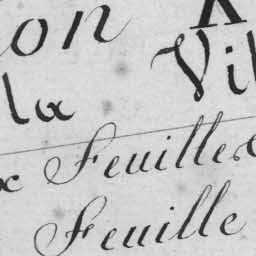 on
la Vil
x Feuille&
Feuille